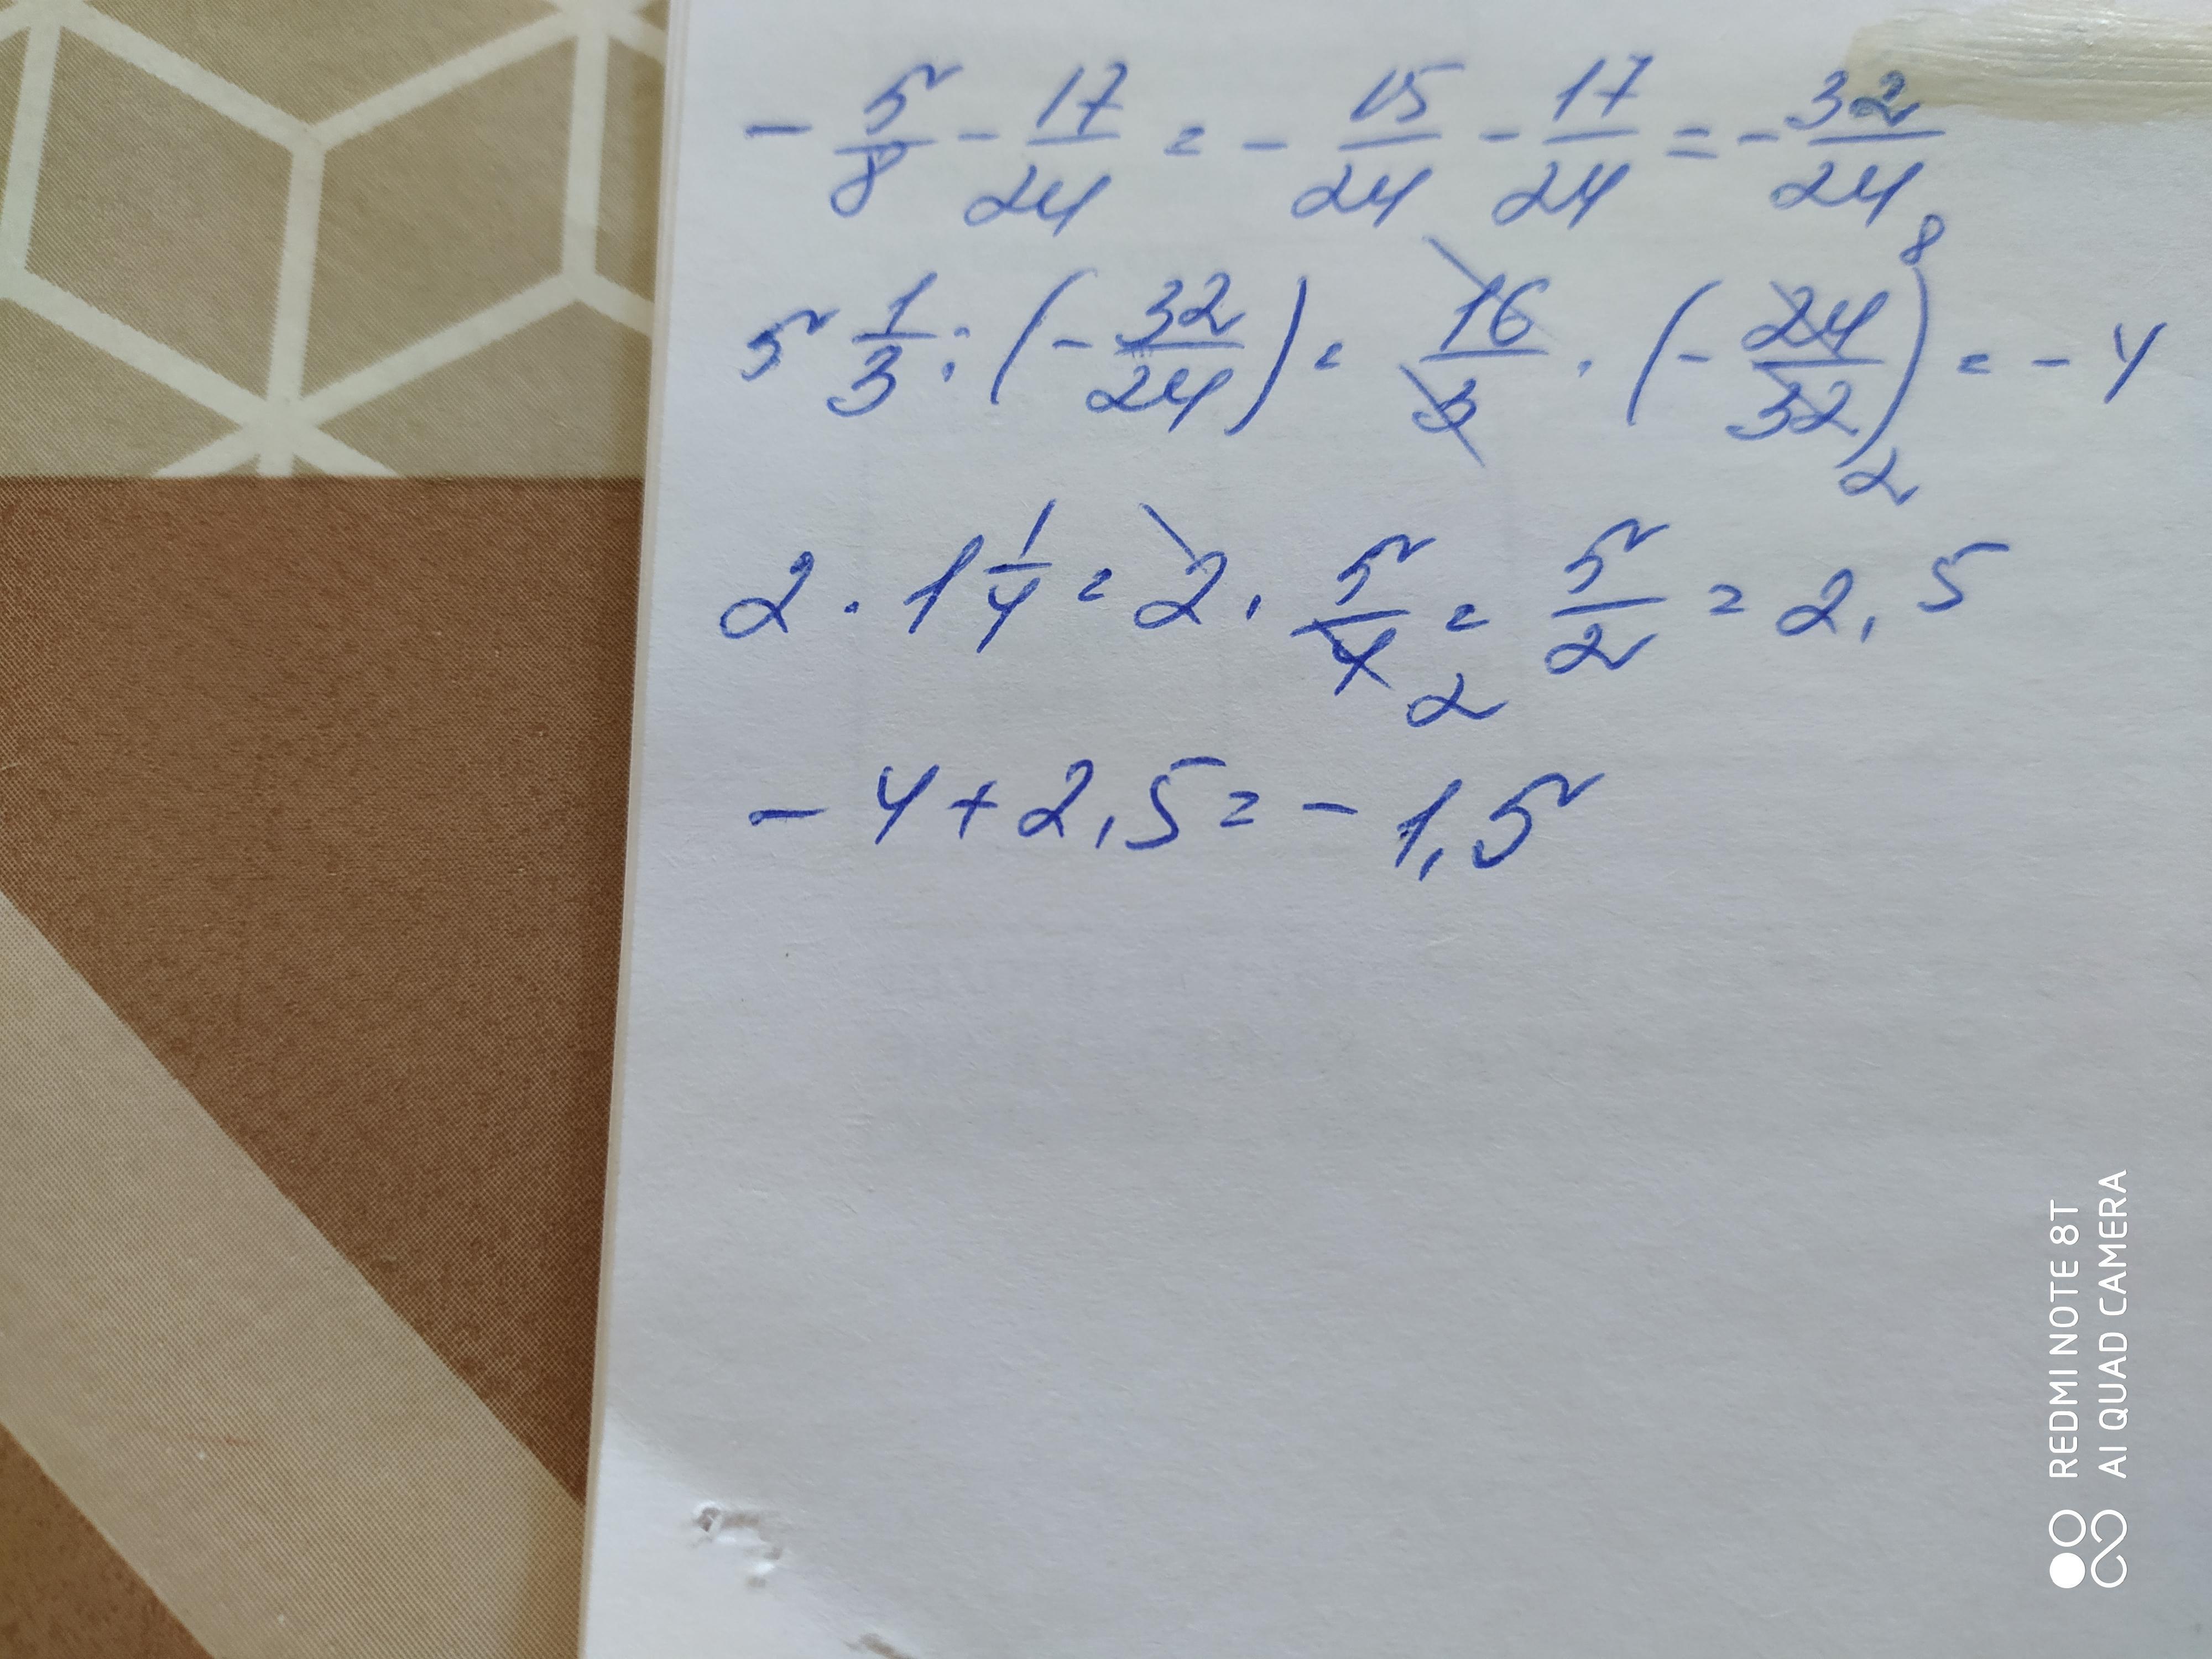 - 5/8 - 17/24 = - 15/24 - 17/24 = - 32/24
5 1/3 : (- 32/24) = 16/3 · (- 24/32) 8 2 = - 4
2 · 1 1/4 = 2 · 5/4 2 = 5/2 = 2,5
- 4 + 2,5 = - 1,5
REDMI NOTE 8T
AI QUAD CAMERA